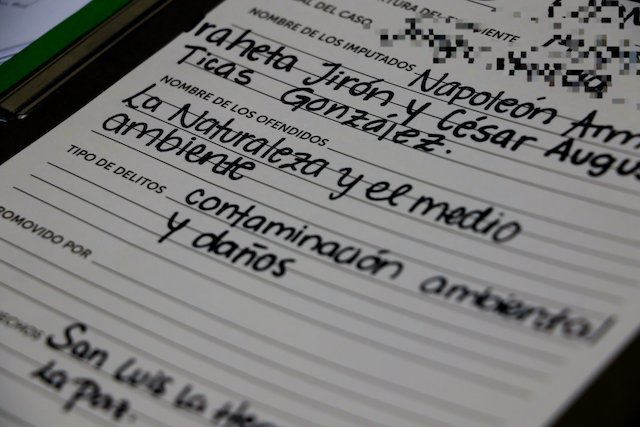 AL DEL CASO
RTURA DEL EXPEDIENTE
NOMBRE DE LOS IMPUTADOS Napoleón Arm
raheta Jirón y César Augus
Ticas González.
NOMBRE DE LOS OFENDIDOS
La Naturaleza y el medio
ambiente
TIPO DE DELITOS contaminación ambiental
y daños
ROMOVIDO POR
HECHOS San Luis La He
La Paz.